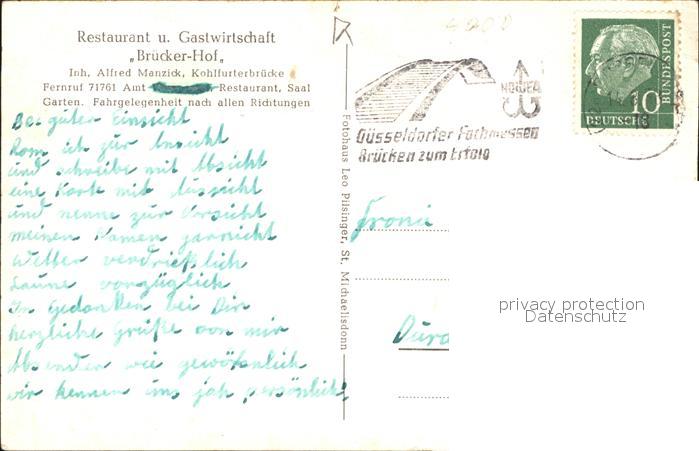 Restaurant u. Gastwirtschaft
„Brücker-Hof„
Inh. Alfred Manzick, Kohlfurterbrücke
Fernruf 71761 Amt Restaurant, Saal
Garten. Fahrgelegenheit nach allen Richtungen
Bei guter Einsicht
Kom ich zur Ansicht
und schreibe mit Absicht
eine Karte mit Aussicht
und nenne zur Vorsicht
meinen Namen garnicht
Wetter verdrießlich
Laune vorzüglich
In Gedanken bei Dir
herzliche Grüße von mir
Absender wie gewöhnlich
wir kennen uns jah persönlich!
Fotohaus Leo Pilsinger, St. Michaelisdonn
NOWEA
Düsseldorfer Fachmessen
Brücken zum Erfolg
10
DEUTSCHE
BUNDESPOST
privacy protection
Datenschutz